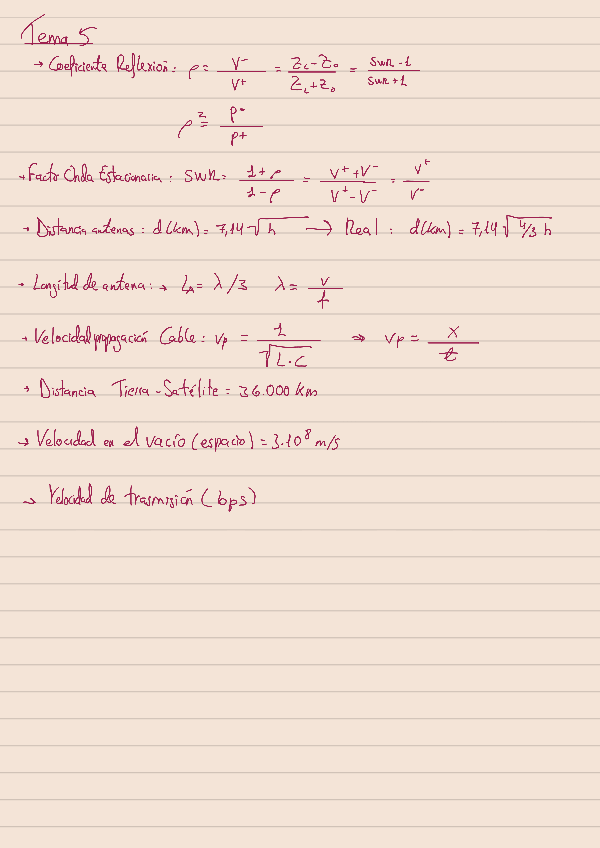 Tema 5
→ Coeficiente Reflexión: ρ = V⁻/V⁺ = (Z_L - Z_0)/(Z_L + Z_0) = (SWR - 1)/(SWR + 1)
ρ² = P⁻/P⁺
→ Factor Onda Estacionaria: SWR = (1 + ρ)/(1 - ρ) = (V⁺ + V⁻)/(V⁺ - V⁻) = V⁺/V⁻
→ Distancia antenas: d(km) = 7,14 √h → Real: d(km) = 7,14 √(4/3 h)
→ Longitud de antena: → L_A = λ/3 λ = v/f
→ Velocidad propagación Cable: vp = 1/√(L·C) ⇒ vp = x/t
→ Distancia Tierra - Satélite = 36.000 km
→ Velocidad en el vacío (espacio) = 3·10⁸ m/s
→ Velocidad de trasmisión (bps)